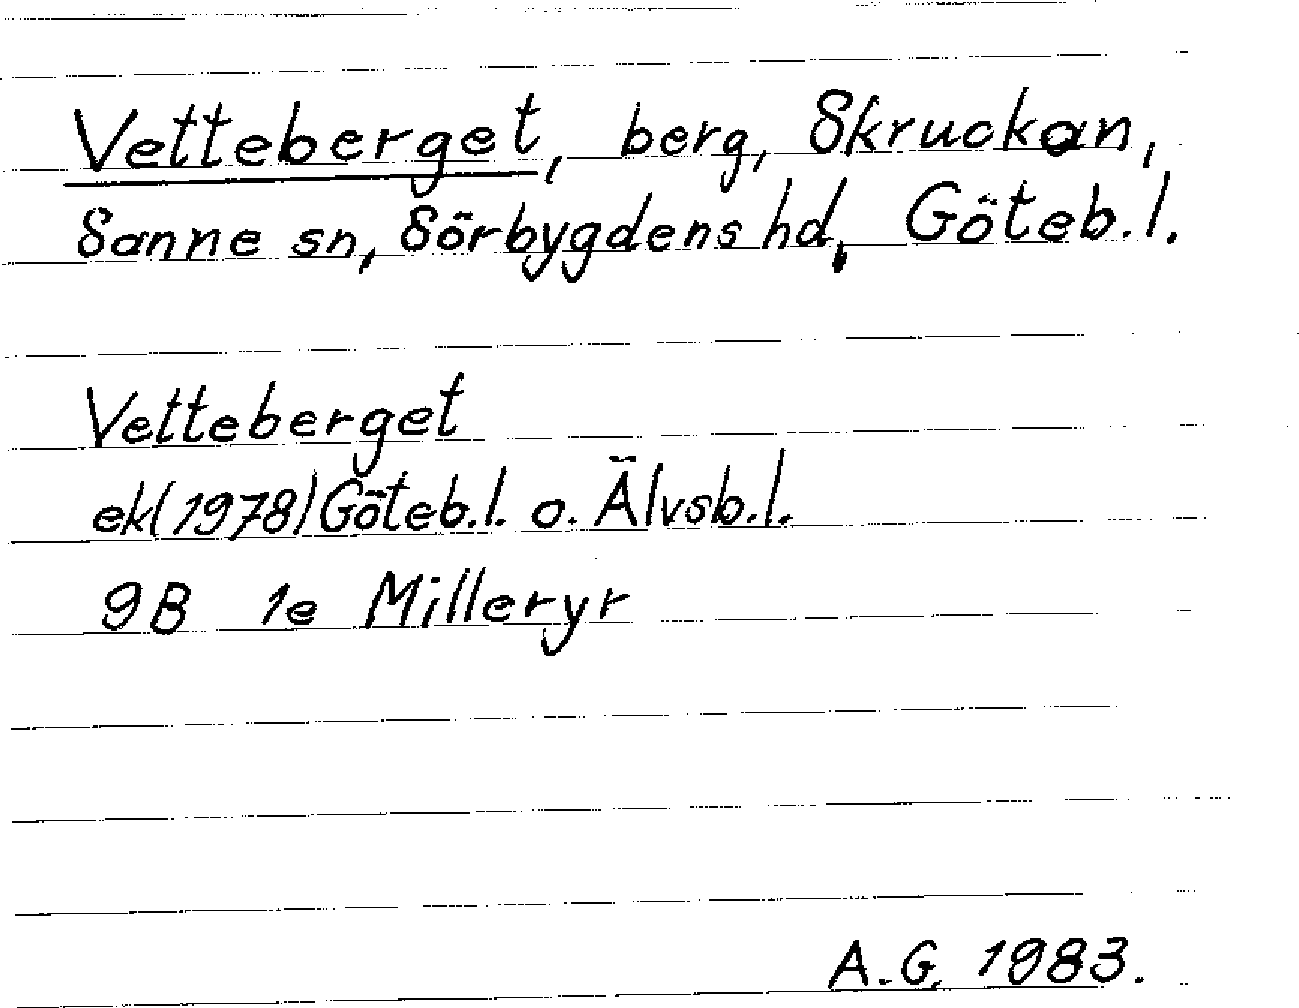 Vetteberget, berg, Skruckan,
Sanne sn, Sörbygdens hd, Göteb.l.
Vetteberget
ek(1978)Göteb.l. o. Älvsb.l.
9B 1e Milleryr
A.G. 1983.